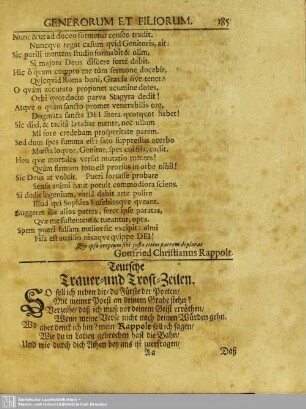 GENERORUM ET FILIORUM. 185
Nunc & ut ad doceo formetur censeo tradit,
Nuncque regat casum quid Genitoris, ait:
Sic patili mentem studio formabit & ollim,
Si majora Deus discere fortè dabit.
Hic ô quam compto me tùm sermone docebit,
Qvicqvid Roma boni, Græcia sive tenet?
O quàm accurato proponet acumine dotes,
Orbi qvot docto parva Stagyra dedit!
Atqve o quàm sancto promet venerabilis ore,
Dogmata sancta DEI litera quotquot habet!
Sic dixi, & tacitâ lætabar mente, nec ullum
Mî fore credebam prosperitate parem.
Sed dum spes summa est: fato suppressus acerbo
Mœsta loqvor, Genitor, spes cadis, cadit,
Heu qvæ mortales versat mutatio mentes!
Qvàm firmum toto est prorsus in orbe nihil!
Sic Deus at voluit. Pueri fortasse probare
Sensa animi haut potuit commodiora sciens.
Si dedit ingenium, variâ dabit arte polire
Illud qvi Sophies Eusebiesque qveant,
Suggeret ille alios patres, foret ipse paratas,
Qvæ me sustentent & tueantur, opes.
Spem pueri fallam melior sic excipit: almi
Fila est auxilio nixaqve quippe DEI!
Gottfried Christianus Rappolt.
Teutsche
Trauer-und Trost-Zeilen.
SO soll ich neben dir du Fürste der Poeten/
Mit meiner Poesi an deinem Grabe stehn?
Verzeihe/ daß ich muß vor deinem Geist erröthen/
Wenn meine Verse nicht nach deinen Würden gehn.
Wo aber denck ich hin? mein Rappolt soll ich sagen/
Wie du in Latien gebrochen hast die Bahn/
Und wie durch dich Athen bey uns ist
Aa Daß